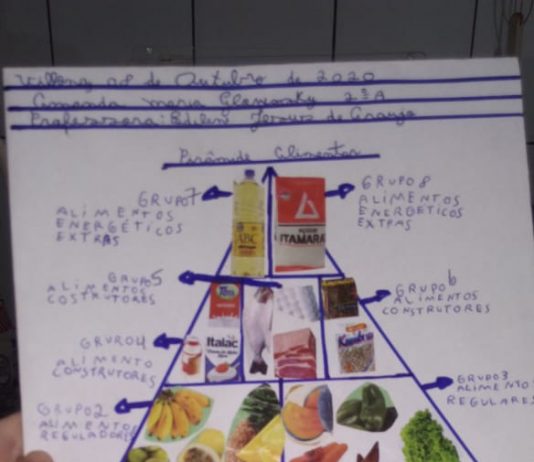 08 de Outubro de 2020
Amanda Maria 2ºA
Professora: de Araujo
Pirâmide Alimentar
GRUPO 7
ALIMENTOS
ENERGÉTICOS
EXTRAS
GRUPO 8
ALIMENTOS
ENERGETICOS
EXTRAS
ABC
ITAMARA
GRUPO 5
ALIMENTOS
COSTRUTORES
GRUPO 6
ALIMENTOS
CONSTRUTORES
GRUPO 4
ALIMENTO
CONSTRUTORES
Italac
GRUPO 3
ALIMENTO
REGULARES
GRUPO 2
ALIMENTOS
REGULADORES